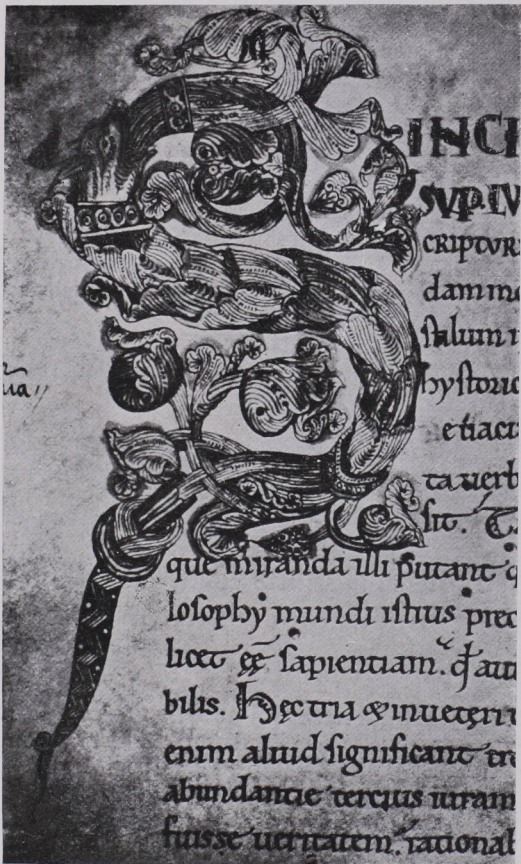 INCI
SUP. LU
CRIPTUR
dam me
stilum i
hystoric
etiacu
ta verb
sit. T
ua //
que miranda illi putant q
losophy mundi istius prec
licet eē sapientiam. qd aut
bilis. Hęc tria & in veteri t
enim aliud significant tre
abundantie tercius utram
fuisse veritatem. rational